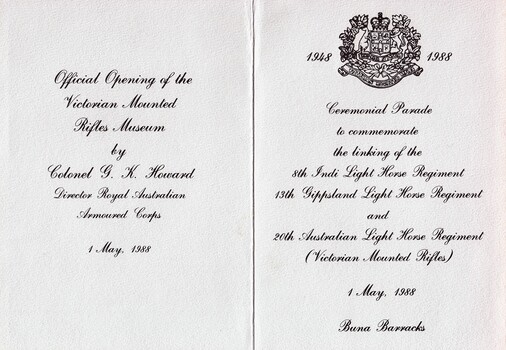 Official Opening of the
Victorian Mounted
Rifles Museum
by
Colonel G. K. Howard
Director Royal Australian
Armoured Corps
1 May, 1988
1948 1988
Ceremonial Parade
to commemorate
the linking of the
8th Indi Light Horse Regiment
13th Gippsland Light Horse Regiment
and
20th Australian Light Horse Regiment
(Victorian Mounted Rifles)
1 May, 1988
Buna Barracks